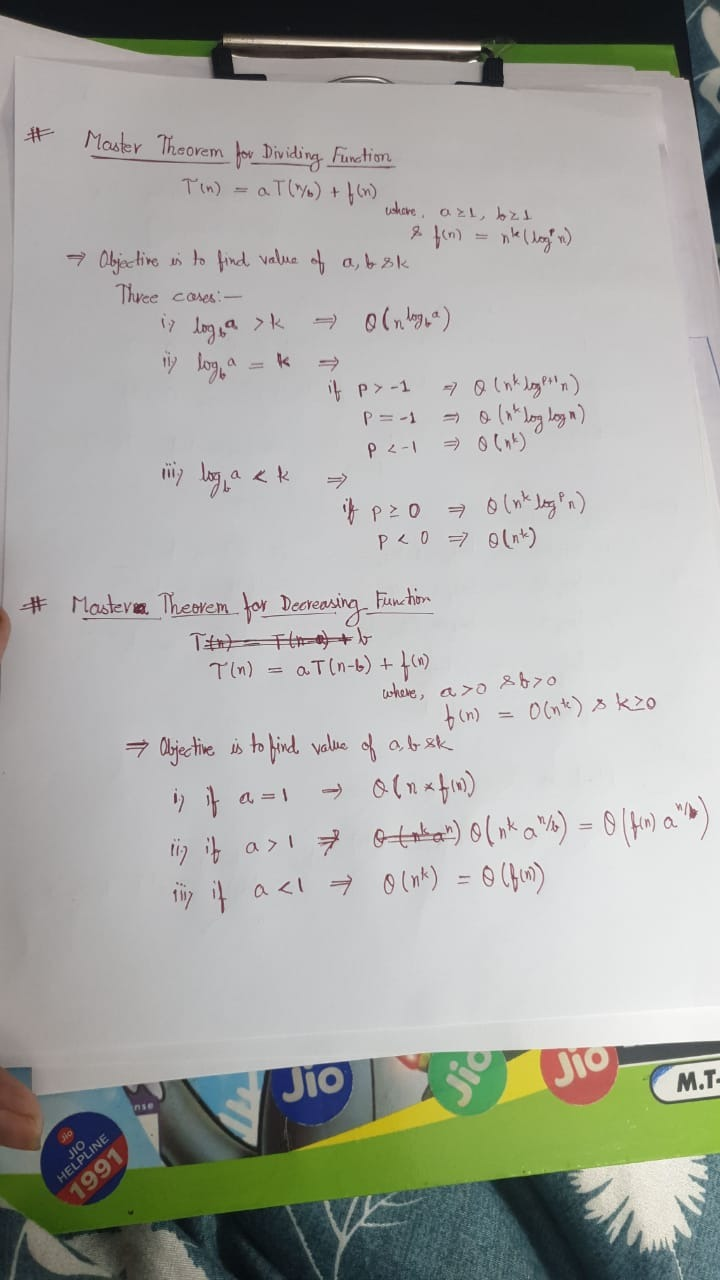 # Master Theorem for Dividing Function
T(n) = aT(n/b) + f(n)
where, a≥1, b≥1
& f(n) = n^k (log^p n)
⇒ Objective is to find value of a, b & k
Three cases:-
i) log_b a > k ⇒ θ(n^(log_b a))
ii) log_b a = k ⇒
if p > -1 ⇒ θ(n^k log^(p+1) n)
P = -1 ⇒ θ(n^k log log n)
P < -1 ⇒ θ(n^k)
iii) log_b a < k ⇒
if p ≥ 0 ⇒ θ(n^k log^p n)
P < 0 ⇒ θ(n^k)
# Master Theorem for Decreasing Function
T(n) = T(n-a) + b
T(n) = aT(n-b) + f(n)
where, a>0 & b>0
f(n) = O(n^k) & k≥0
⇒ Objective is to find value of a, b & k
i) if a = 1 ⇒ θ(n × f(n))
ii) if a > 1 ⇒ θ(n^k a^n) θ(n^k a^(n/b)) = θ(f(n) a^(n/b))
iii) if a < 1 ⇒ θ(n^k) = θ(f(n))
Jio
Jio
Jio
M.T-
nse
Jio
JIO
HELPLINE
1991